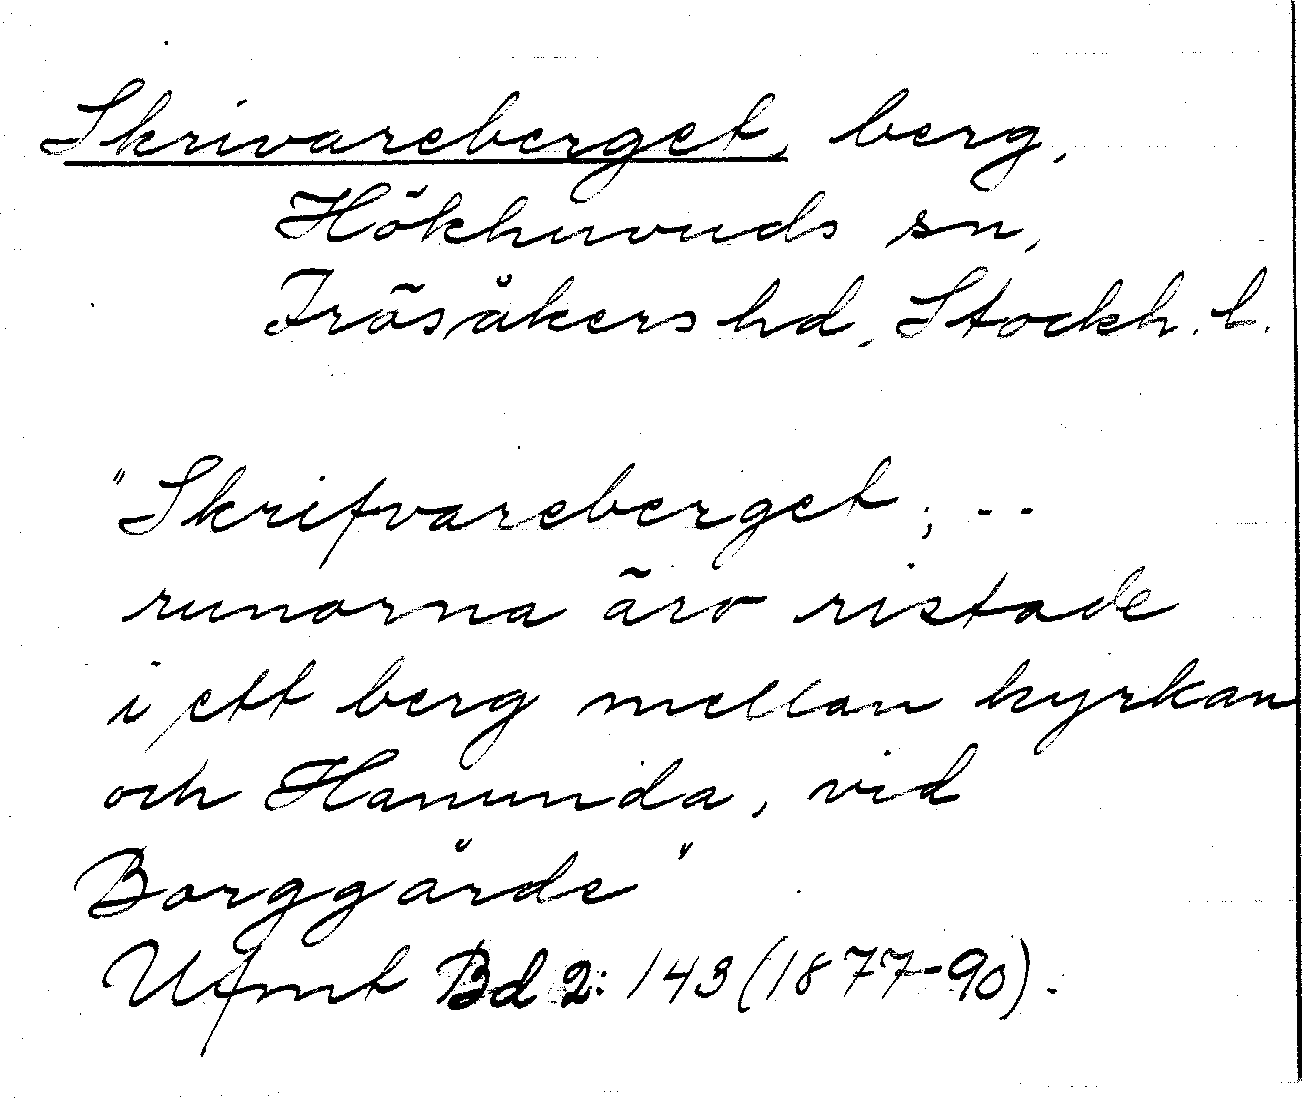 Skrivareberget, berg,
Hökhuvuds sn,
Frösåkers hd, Stockh. l.
"Skrifvareberget; --
runorna äro ristade
i ett berg mellan kyrkan
och Hanunda, vid
Borggårde"
Ufmt Bd 2: 143 (1877-90).